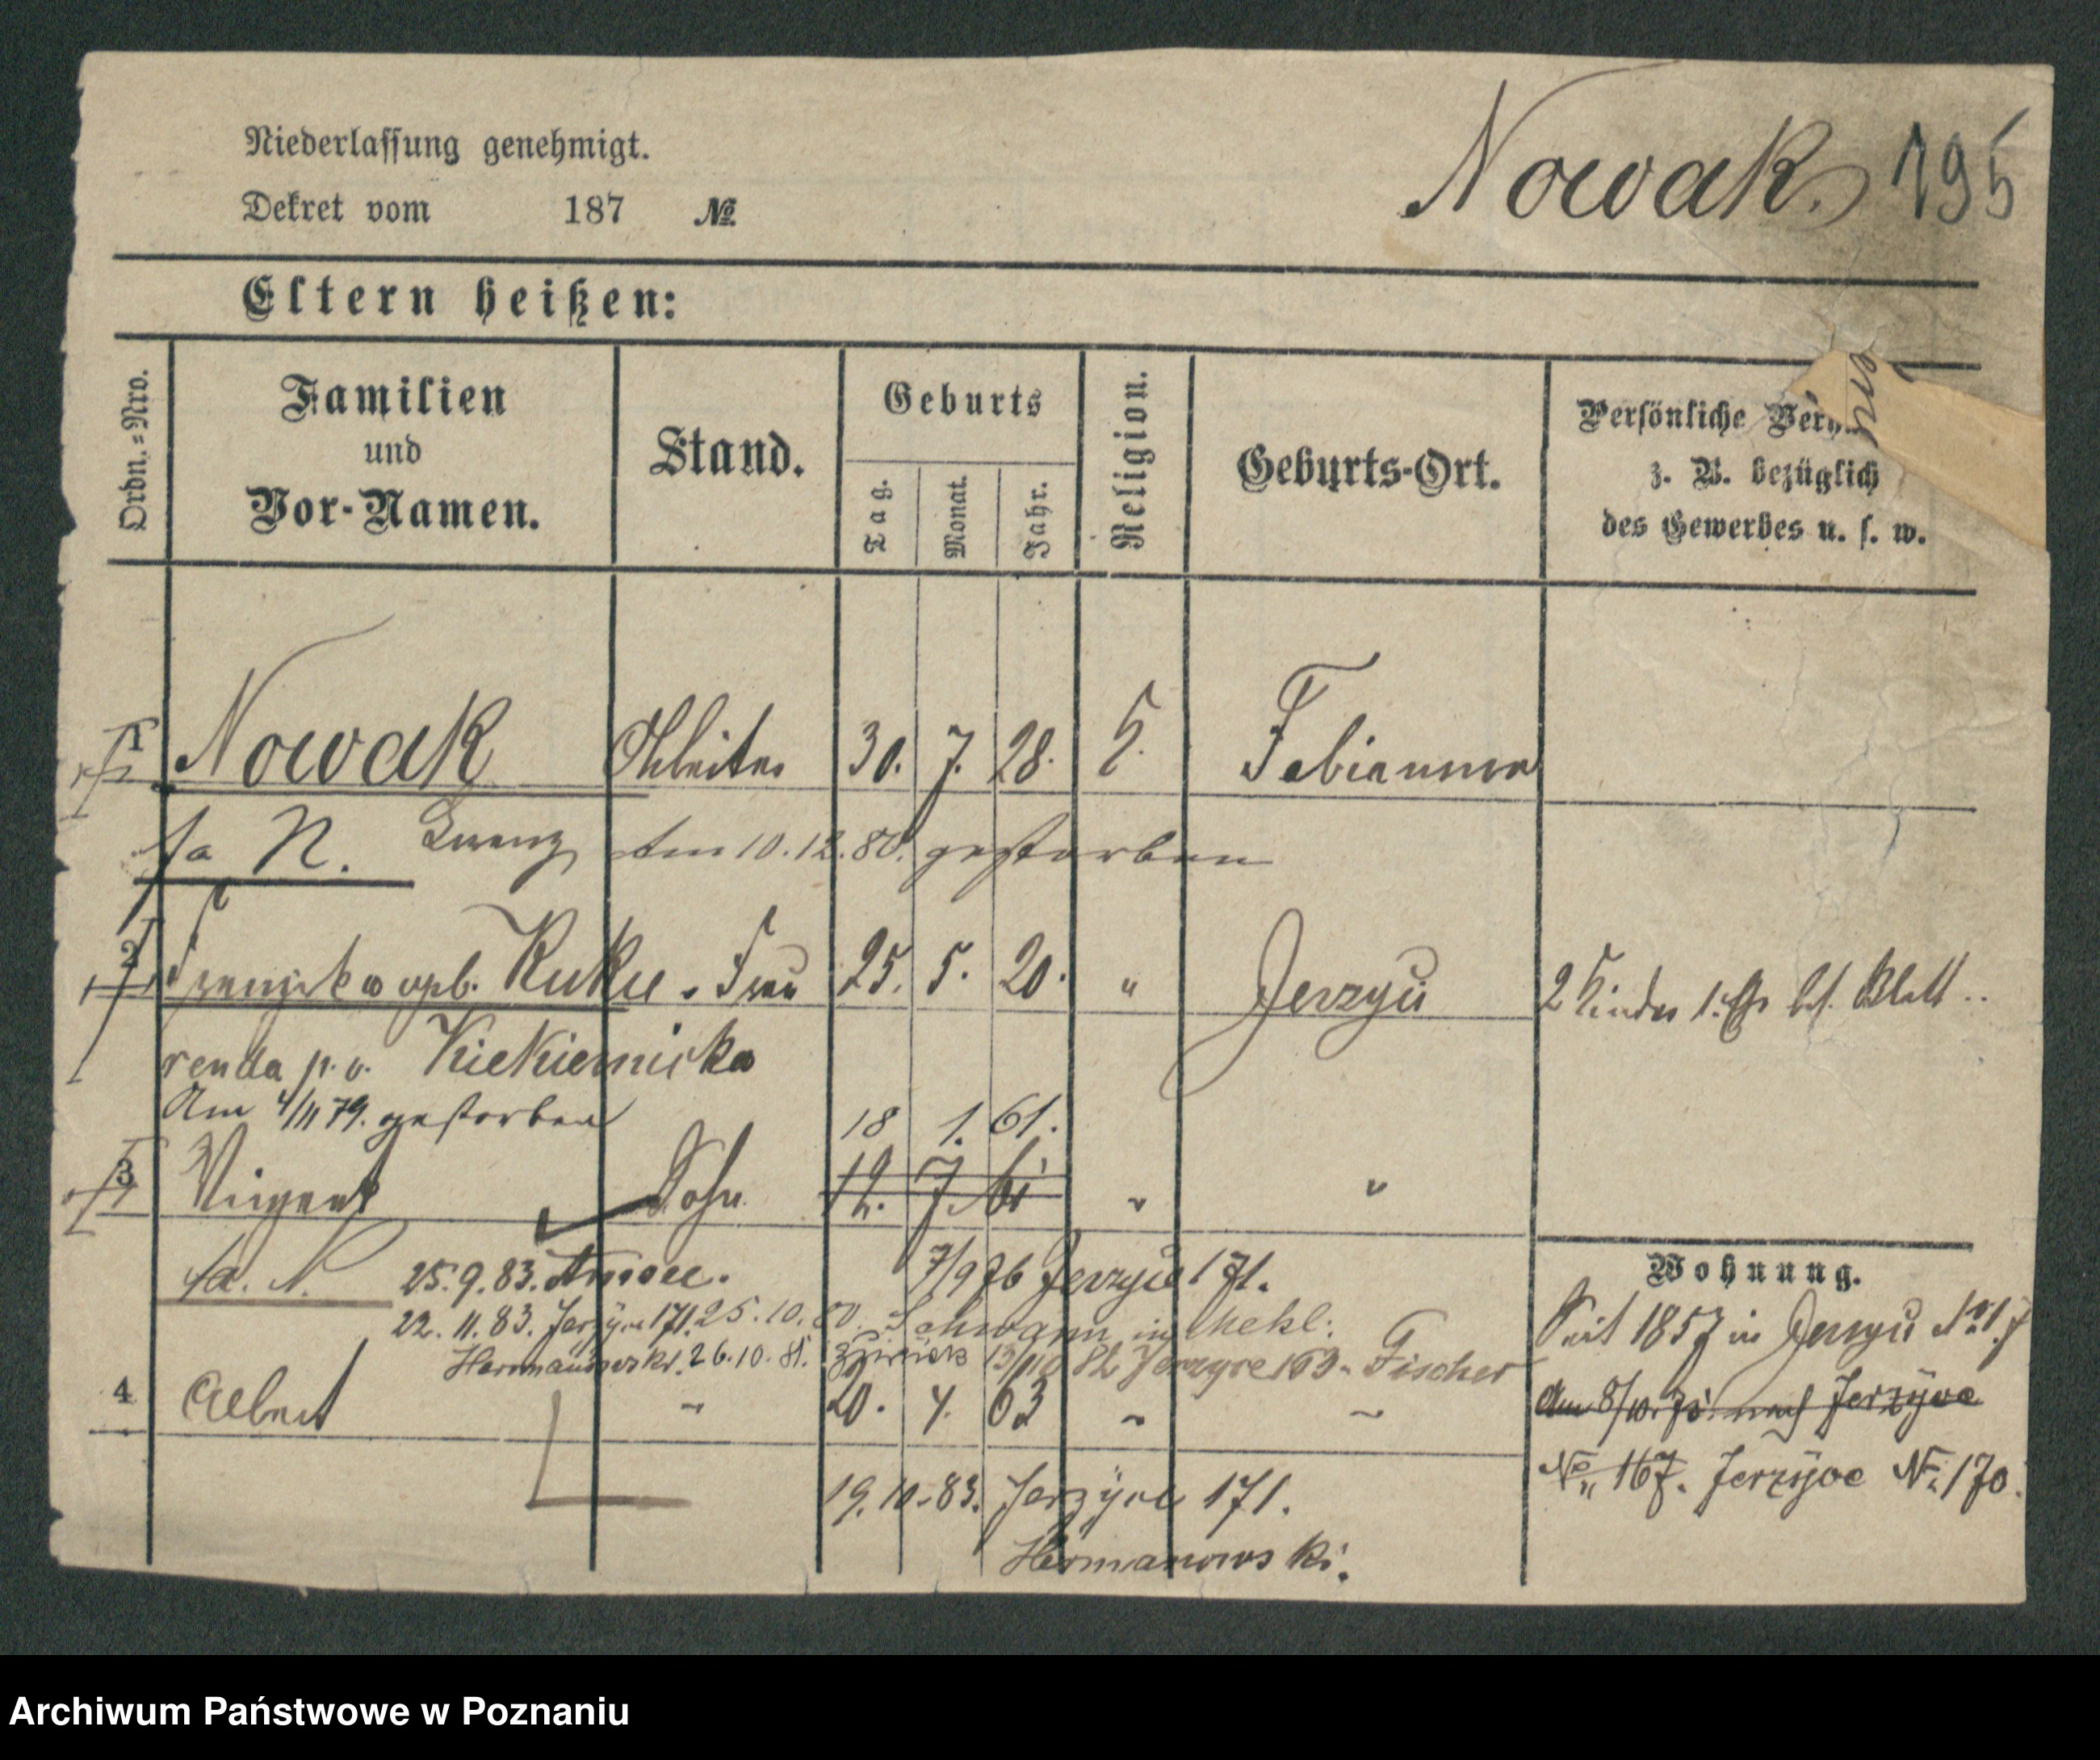 Niederlassung genehmigt.
Nowak. 195
Dekret vom 187 №
Eltern heißen:
Ordn.=Nro.
Familien
und
Vor-Namen.
Stand.
Geburts
Tag.
Monat.
Jahr.
Religion.
Geburts-Ort.
Persönliche
z. B. bezüglich
des Gewerbes u. s. w.
1 Nowak 30. 7. 28.
N. am 10.12.80. gestorben
2 Kuku. Frau 25. 5. 20. " Jerzyce 2 Kinder 1. Blatt
p. v. Kiekiernicka
Am 4/11 79. gestorben
18 1. 61.
3 Vinzent Sohn 12. 7. 61 " "
N. 25.9.83. 7/9 76 Jerzyce 171.
Wohnung.
22. 11. 83. Jerzyce 171. 25.10.80. in Mekl:
Seit 1857 in Jerzyce
26.10.81. 82 Jerzyce 163. Fischer
4 Albert " 20. 4. 63 " "
Am 8/10. nach Jerzyce
№ 167. Jerzyce № 170.
19.10.83. Jerzyce 171.
Hermanowski.
Archiwum Państwowe w Poznaniu